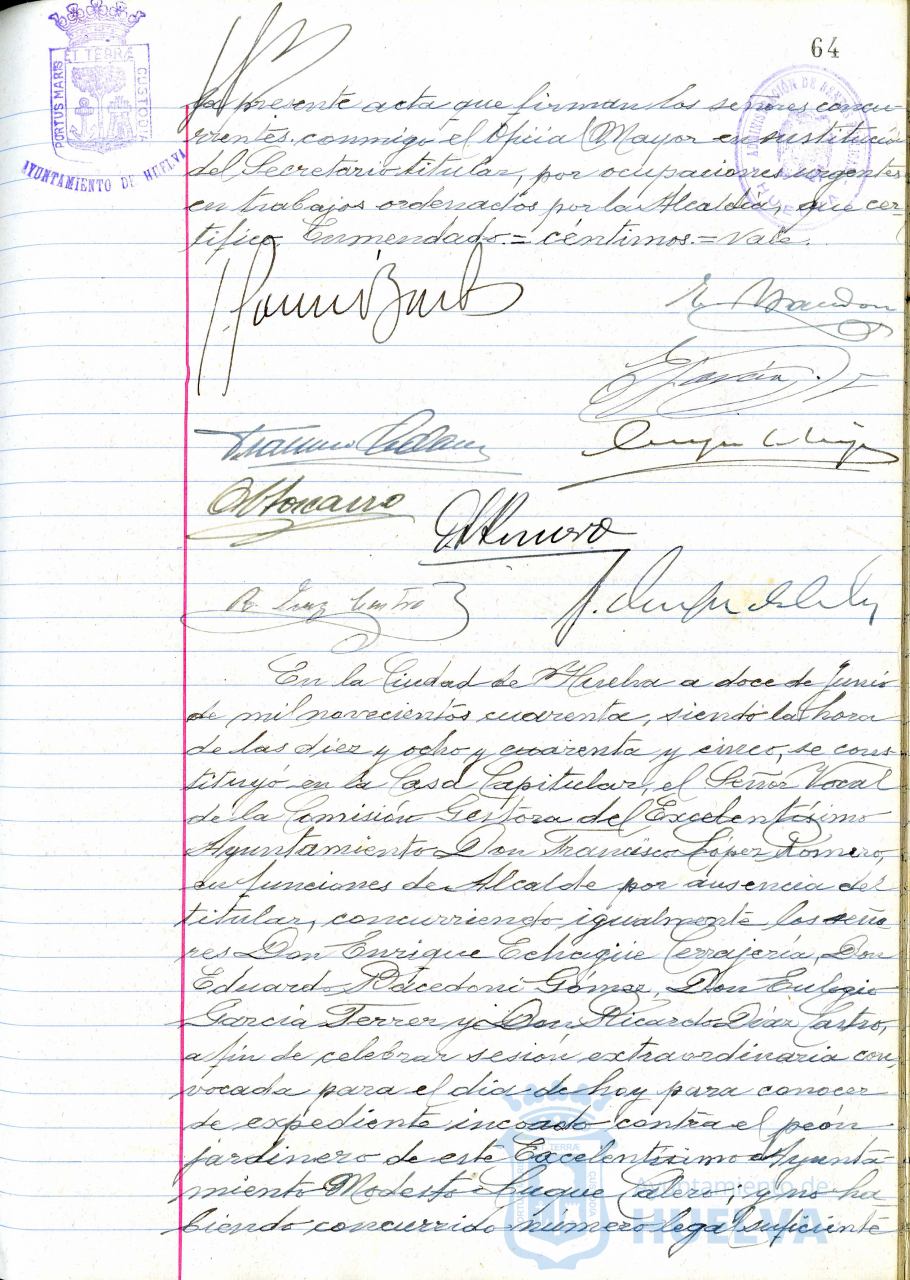 64
PORTUS MARIS ET TERRÆ CUSTODIA
AYUNTAMIENTO DE HUELVA
la presente acta que firman los señores concu-
rrentes conmigo el Oficial Mayor en sustitución
del Secretario titular, por ocupaciones urgentes
en trabajos ordenados por la Alcaldía, que cer-
tifico Enmendado = céntimos = Vale.
En la Ciudad de Huelva a doce de Junio
de mil novecientos cuarenta, siendo la hora
de las diez y ocho y cuarenta y cinco, se cons-
tituyó en la Casa Capitular, el Señor Vocal
de la Comisión Gestora del Excelentísimo
Ayuntamiento Don Francisco López Romero,
en funciones de Alcalde por ausencia del
titular, concurriendo igualmente los seño-
res Don Enrique Echagüe Cerrajería, Don
Eduardo Gómez, Don Eulogio
García Ferrer y Don Ricardo Díaz Castro,
a fin de celebrar sesión extraordinaria con-
vocada para el día de hoy para conocer
de expediente incoado contra el peón
jardinero de este Excelentísimo Ayunta-
miento Modesto Luque Calero, y no ha-
biendo concurrido número legal suficiente
Ayuntamiento de
HUELVA